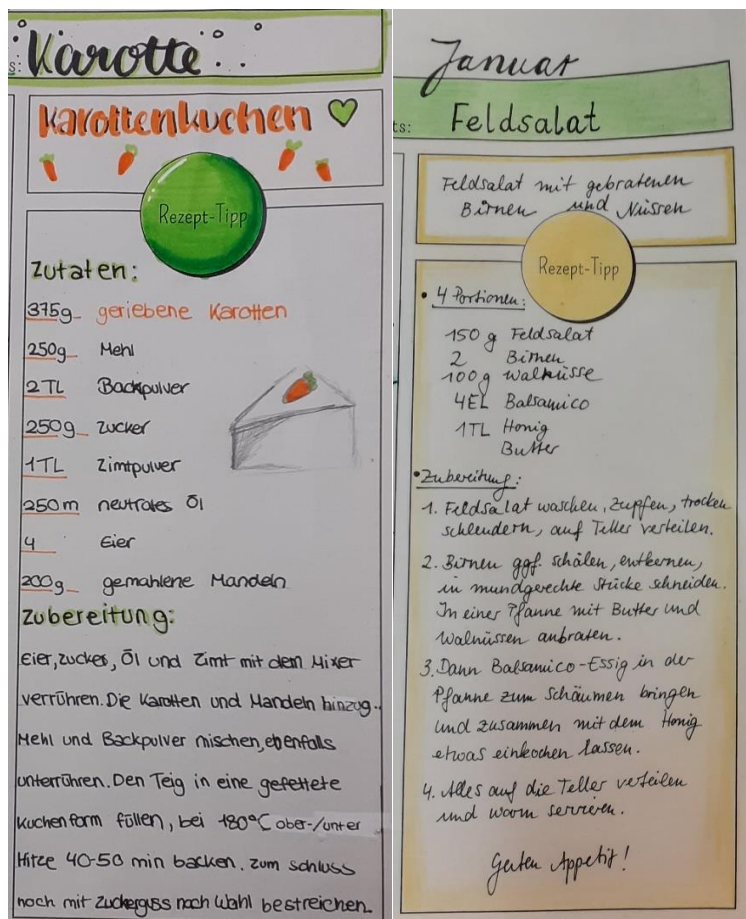 s: Karotte
Karottenkuchen
Rezept-Tipp
Zutaten:
375g geriebene Karotten
250g Mehl
2TL Backpulver
250g Zucker
1TL Zimtpulver
250m neutrales Öl
4 Eier
200g gemahlene Mandeln
Zubereitung:
Eier, Zucker, Öl und Zimt mit dem Mixer
verrühren. Die Karotten und Mandeln hinzug..
Mehl und Backpulver mischen, ebenfalls
unterrühren. Den Teig in eine gefettete
Kuchenform füllen, bei 180°C ober-/unter
Hitze 40-50 min backen. Zum schluss
noch mit Zuckerguss nach Wahl bestreichen.
Januar
ts: Feldsalat
Feldsalat mit gebratenen
Birnen und Nüssen
Rezept-Tipp
• 4 Portionen:
150 g Feldsalat
2 Birnen
100g Walnüsse
4EL Balsamico
1TL Honig
Butter
• Zubereitung:
1. Feldsalat waschen, zupfen, trocken
schleudern, auf Teller verteilen.
2. Birnen ggf. schälen, entkernen,
in mundgerechte Stücke schneiden.
In einer Pfanne mit Butter und
Walnüssen anbraten.
3. Dann Balsamico-Essig in der
Pfanne zum Schäumen bringen
und zusammen mit dem Honig
etwas einkochen lassen.
4. Alles auf die Teller verteilen
und warm servieren.
Guten Appetit!